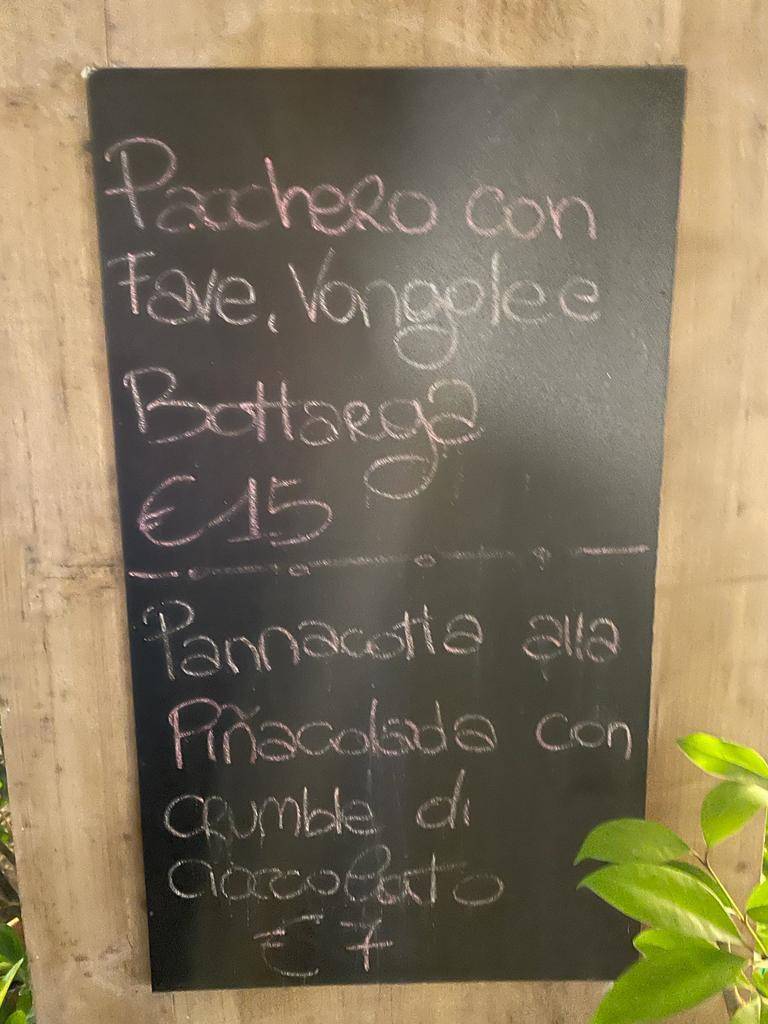 Pacchero con
Fave, Vongole e
Bottarga
€15
Pannacotta alla
Piñacolada con
crumble di
cioccolato
€ 7